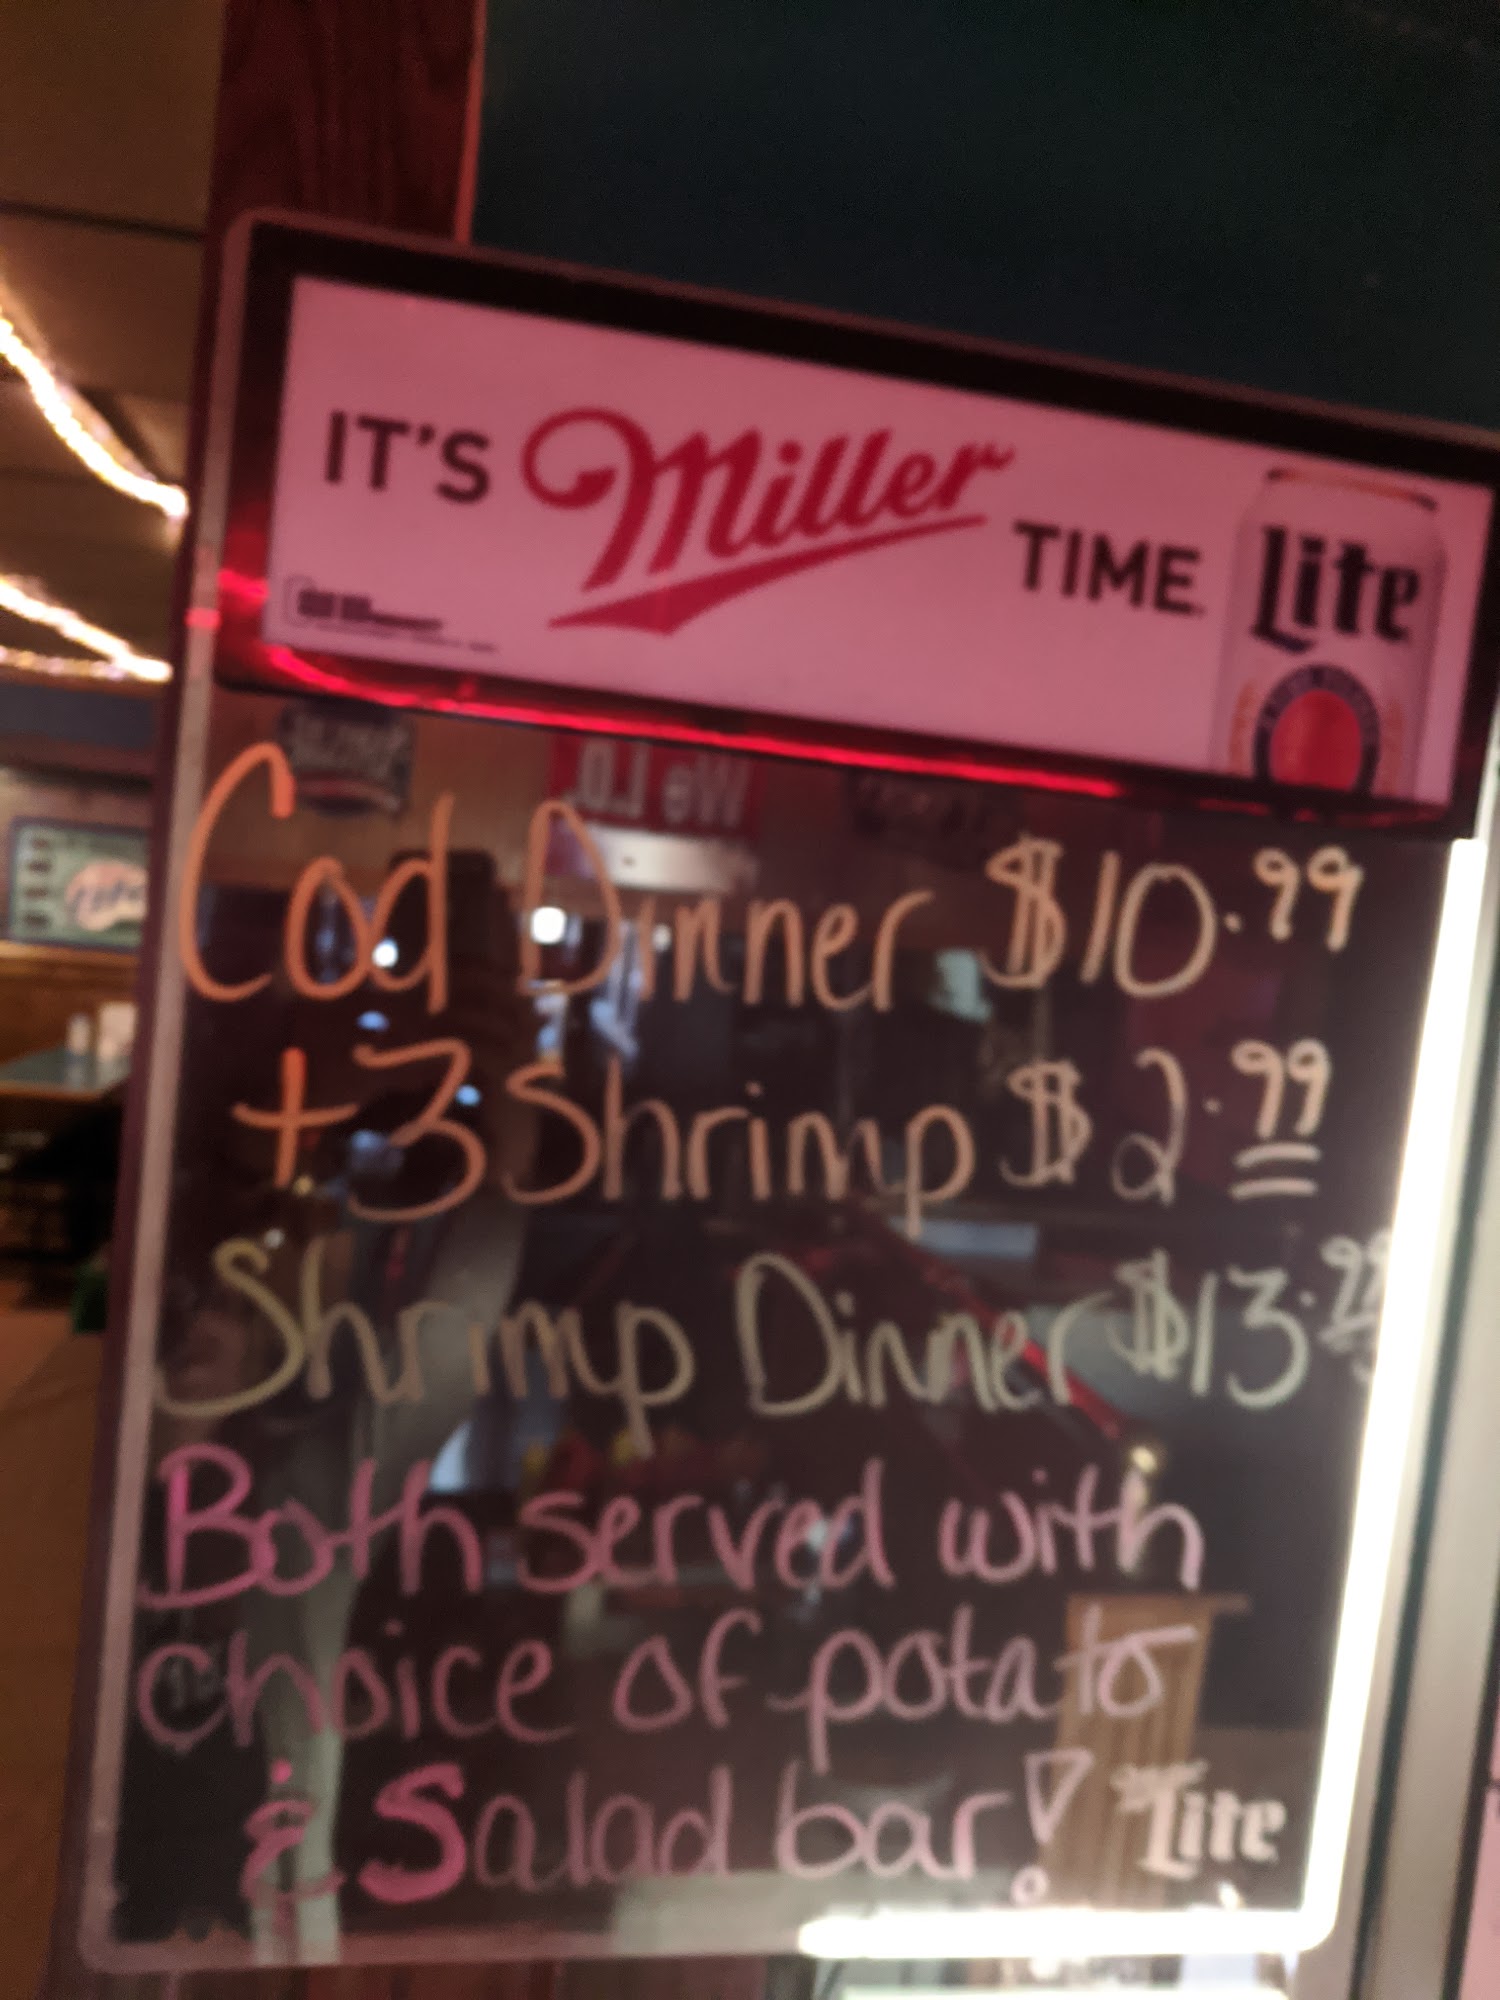 IT'S Miller TIME
Lite
Cod Dinner $10.99
+3 Shrimp $2.99
Shrimp Dinner $13.99
Both served with
choice of potato
& Salad bar!
Lite